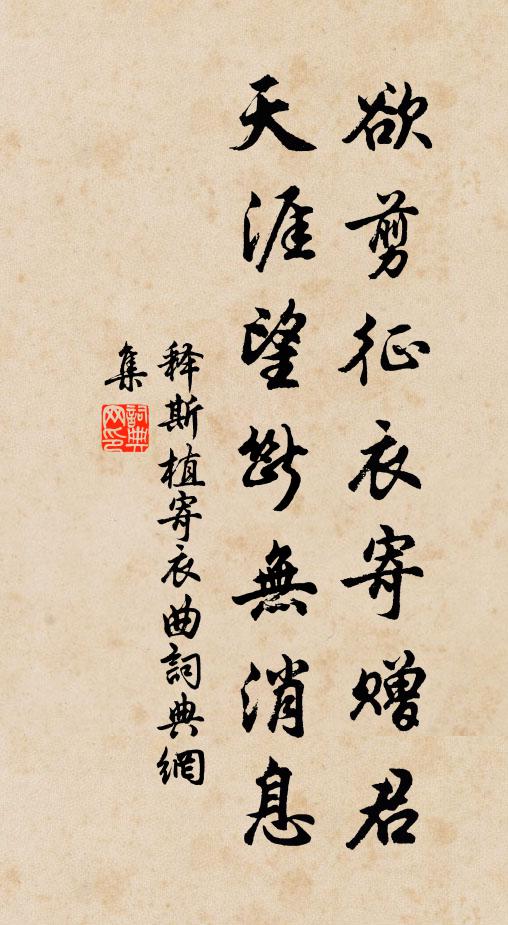 欲剪征衣寄赠君
天涯望断無消息
释斯植寄衣曲詞典網
集
詞典
网印